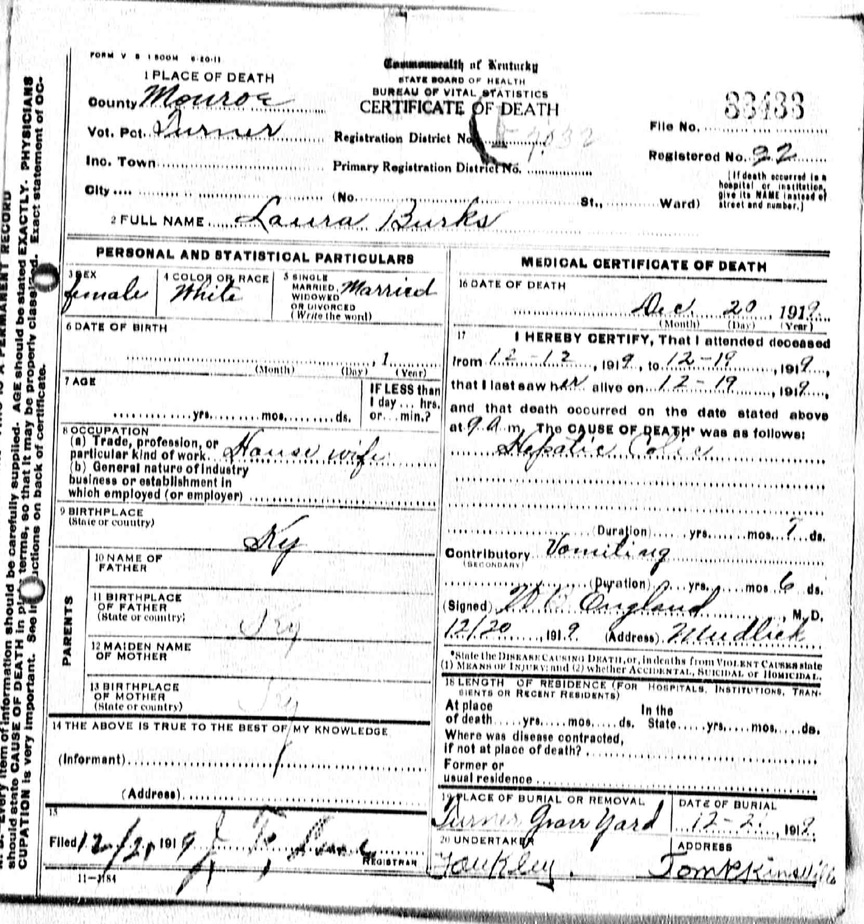 FORM V S 1 500M 6-20-11
Commonwealth of Kentucky
STATE BOARD OF HEALTH
BUREAU OF VITAL STATISTICS
CERTIFICATE OF DEATH
1 PLACE OF DEATH
County Monroe
Vot. Pct. Turner
Inc. Town
City
Registration District No.
Primary Registration District No.
File No. 33433
Registered No. 22
(No. St., Ward)
[If death occurred in a hospital or institution, give its NAME instead of street and number.]
2 FULL NAME Laura Burks
PERSONAL AND STATISTICAL PARTICULARS
3 SEX female
4 COLOR OR RACE White
5 SINGLE MARRIED, WIDOWED OR DIVORCED (Write the word) Married
6 DATE OF BIRTH
, 1
(Month) (Day) (Year)
7 AGE
yrs. mos. ds.
IF LESS than 1 day ... hrs. or ... min.?
8 OCCUPATION
(a) Trade, profession, or particular kind of work House wife
(b) General nature of industry
business or establishment in
which employed (or employer)
9 BIRTHPLACE
(State or country)
Ky
PARENTS
10 NAME OF FATHER
11 BIRTHPLACE OF FATHER (State or country) Ky
12 MAIDEN NAME OF MOTHER
13 BIRTHPLACE OF MOTHER Ky
14 THE ABOVE IS TRUE TO THE BEST OF MY KNOWLEDGE
(Informant)
(Address)
15
Filed 12/21, 1919 J. T.
REGISTRAR
11-3184
MEDICAL CERTIFICATE OF DEATH
16 DATE OF DEATH
Dec 20 1919
(Month) (Day) (Year)
17 I HEREBY CERTIFY, That I attended deceased
from 12-12, 1919, to 12-19, 1919,
that I last saw her alive on 12-19, 1919,
and that death occurred on the date stated above
at 9 a m. The CAUSE OF DEATH* was as follows:
Hepatic Colic
(Duration) yrs. mos 7 ds.
Contributory Vomiting
(SECONDARY)
(Duration) yrs. mos 6 ds.
(Signed) England M. D.
12/20, 1919 (Address) Mudlick
*State the DISEASE CAUSING DEATH, or, in deaths from VIOLENT CAUSES state
(1) MEANS OF INJURY; and (2) whether ACCIDENTAL, SUICIDAL or HOMICIDAL.
18 LENGTH OF RESIDENCE (FOR HOSPITALS, INSTITUTIONS, TRANSIENTS OR RECENT RESIDENTS)
At place of death yrs. mos. ds. In the State yrs. mos. ds.
Where was disease contracted,
if not at place of death?
Former or
usual residence
19 PLACE OF BURIAL OR REMOVAL
Turner Grave Yard
DATE OF BURIAL
12-21, 1919
20 UNDERTAKER
ADDRESS
Tompkinsville
should be carefully supplied. AGE should be stated EXACTLY. PHYSICIANS
should state CAUSE OF DEATH in terms, so that it may be properly classified. Exact statement of OCCUPATION is very important.